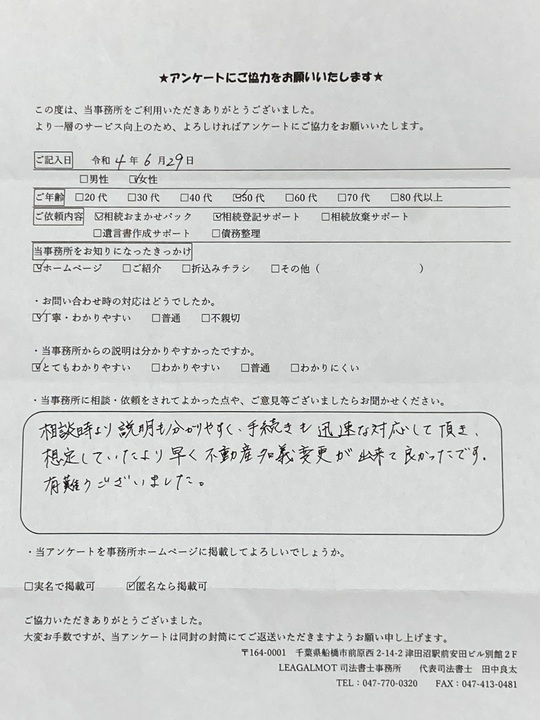 ★アンケートにご協力をお願いいたします★
この度は、当事務所をご利用いただきありがとうございました。
より一層のサービス向上のため、よろしければアンケートにご協力をお願いいたします。
ご記入日 令和 4 年 6 月 29 日
□男性 ☑女性
ご年齢 □20代 □30代 □40代 ☑50代 □60代 □70代 □80代以上
ご依頼内容 ☑相続おまかせパック ☑相続登記サポート □相続放棄サポート
□遺言書作成サポート □債務整理
当事務所をお知りになったきっかけ
☑ホームページ □ご紹介 □折込みチラシ □その他（ ）
・お問い合わせ時の対応はどうでしたか。
☑丁寧・わかりやすい □普通 □不親切
・当事務所からの説明は分かりやすかったですか。
☑とてもわかりやすい □わかりやすい □普通 □わかりにくい
・当事務所に相談・依頼をされてよかった点や、ご意見等ございましたらお聞かせください。
相談時より説明も分かりやすく、手続きも迅速な対応して頂き、
想定していたより早く不動産名義変更が出来て良かったです。
有難うございました。
・当アンケートを事務所ホームページに掲載してよろしいでしょうか。
□実名で掲載可 ☑匿名なら掲載可
ご協力いただきありがとうございました。
大変お手数ですが、当アンケートは同封の封筒にてご返送いただきますようお願い申し上げます。
〒164-0001 千葉県船橋市前原西2-14-2津田沼駅前安田ビル別館2F
LEAGALMOT司法書士事務所 代表司法書士 田中良太
TEL：047-770-0320 FAX：047-413-0481